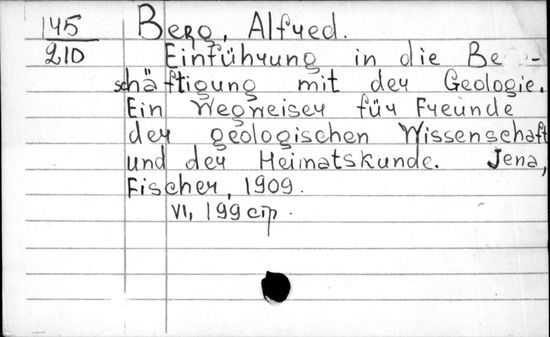 145
210
Berg, Alfred.
Einführung in die Be-
schäftigung mit der Geologie.
Ein Wegweiser für Freunde
der geologischen Wissenschaft
und der Heimatskunde. Jena,
Fischer, 1909.
VI, 199 стр.